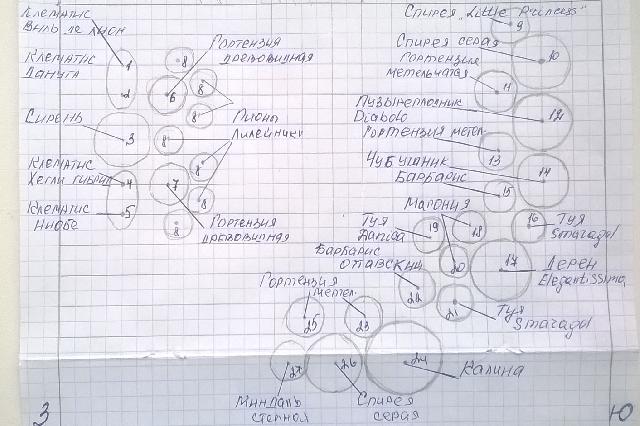 Клематис
Виль де Лион
Клематис
Дануга
Сирень
Клематис
Хегли гибрид
Клематис
Ниобе
1
2
3
4
5
Гортензия
древовидная
8
6
8
8
Пионы
Лилейники
8
8
7
8
8
Гортензия
древовидная
Спирея "Little Princess"
9
Спирея серая
10
Гортензия
метельчатая
11
Пузыреплодник
Diabolo
12
Гортензия метел.
13
Чубушник
14
Барбарис
15
Магония
18
20
16
Туя
Smaragd
Туя
19
17
Дерен
Elegantissima
Барбарис
оттавский
22
21
Туя
Smaragd
Гортензия
метел.
25
23
24
Калина
26
Спирея
серая
27
Миндаль
степной
З
Ю